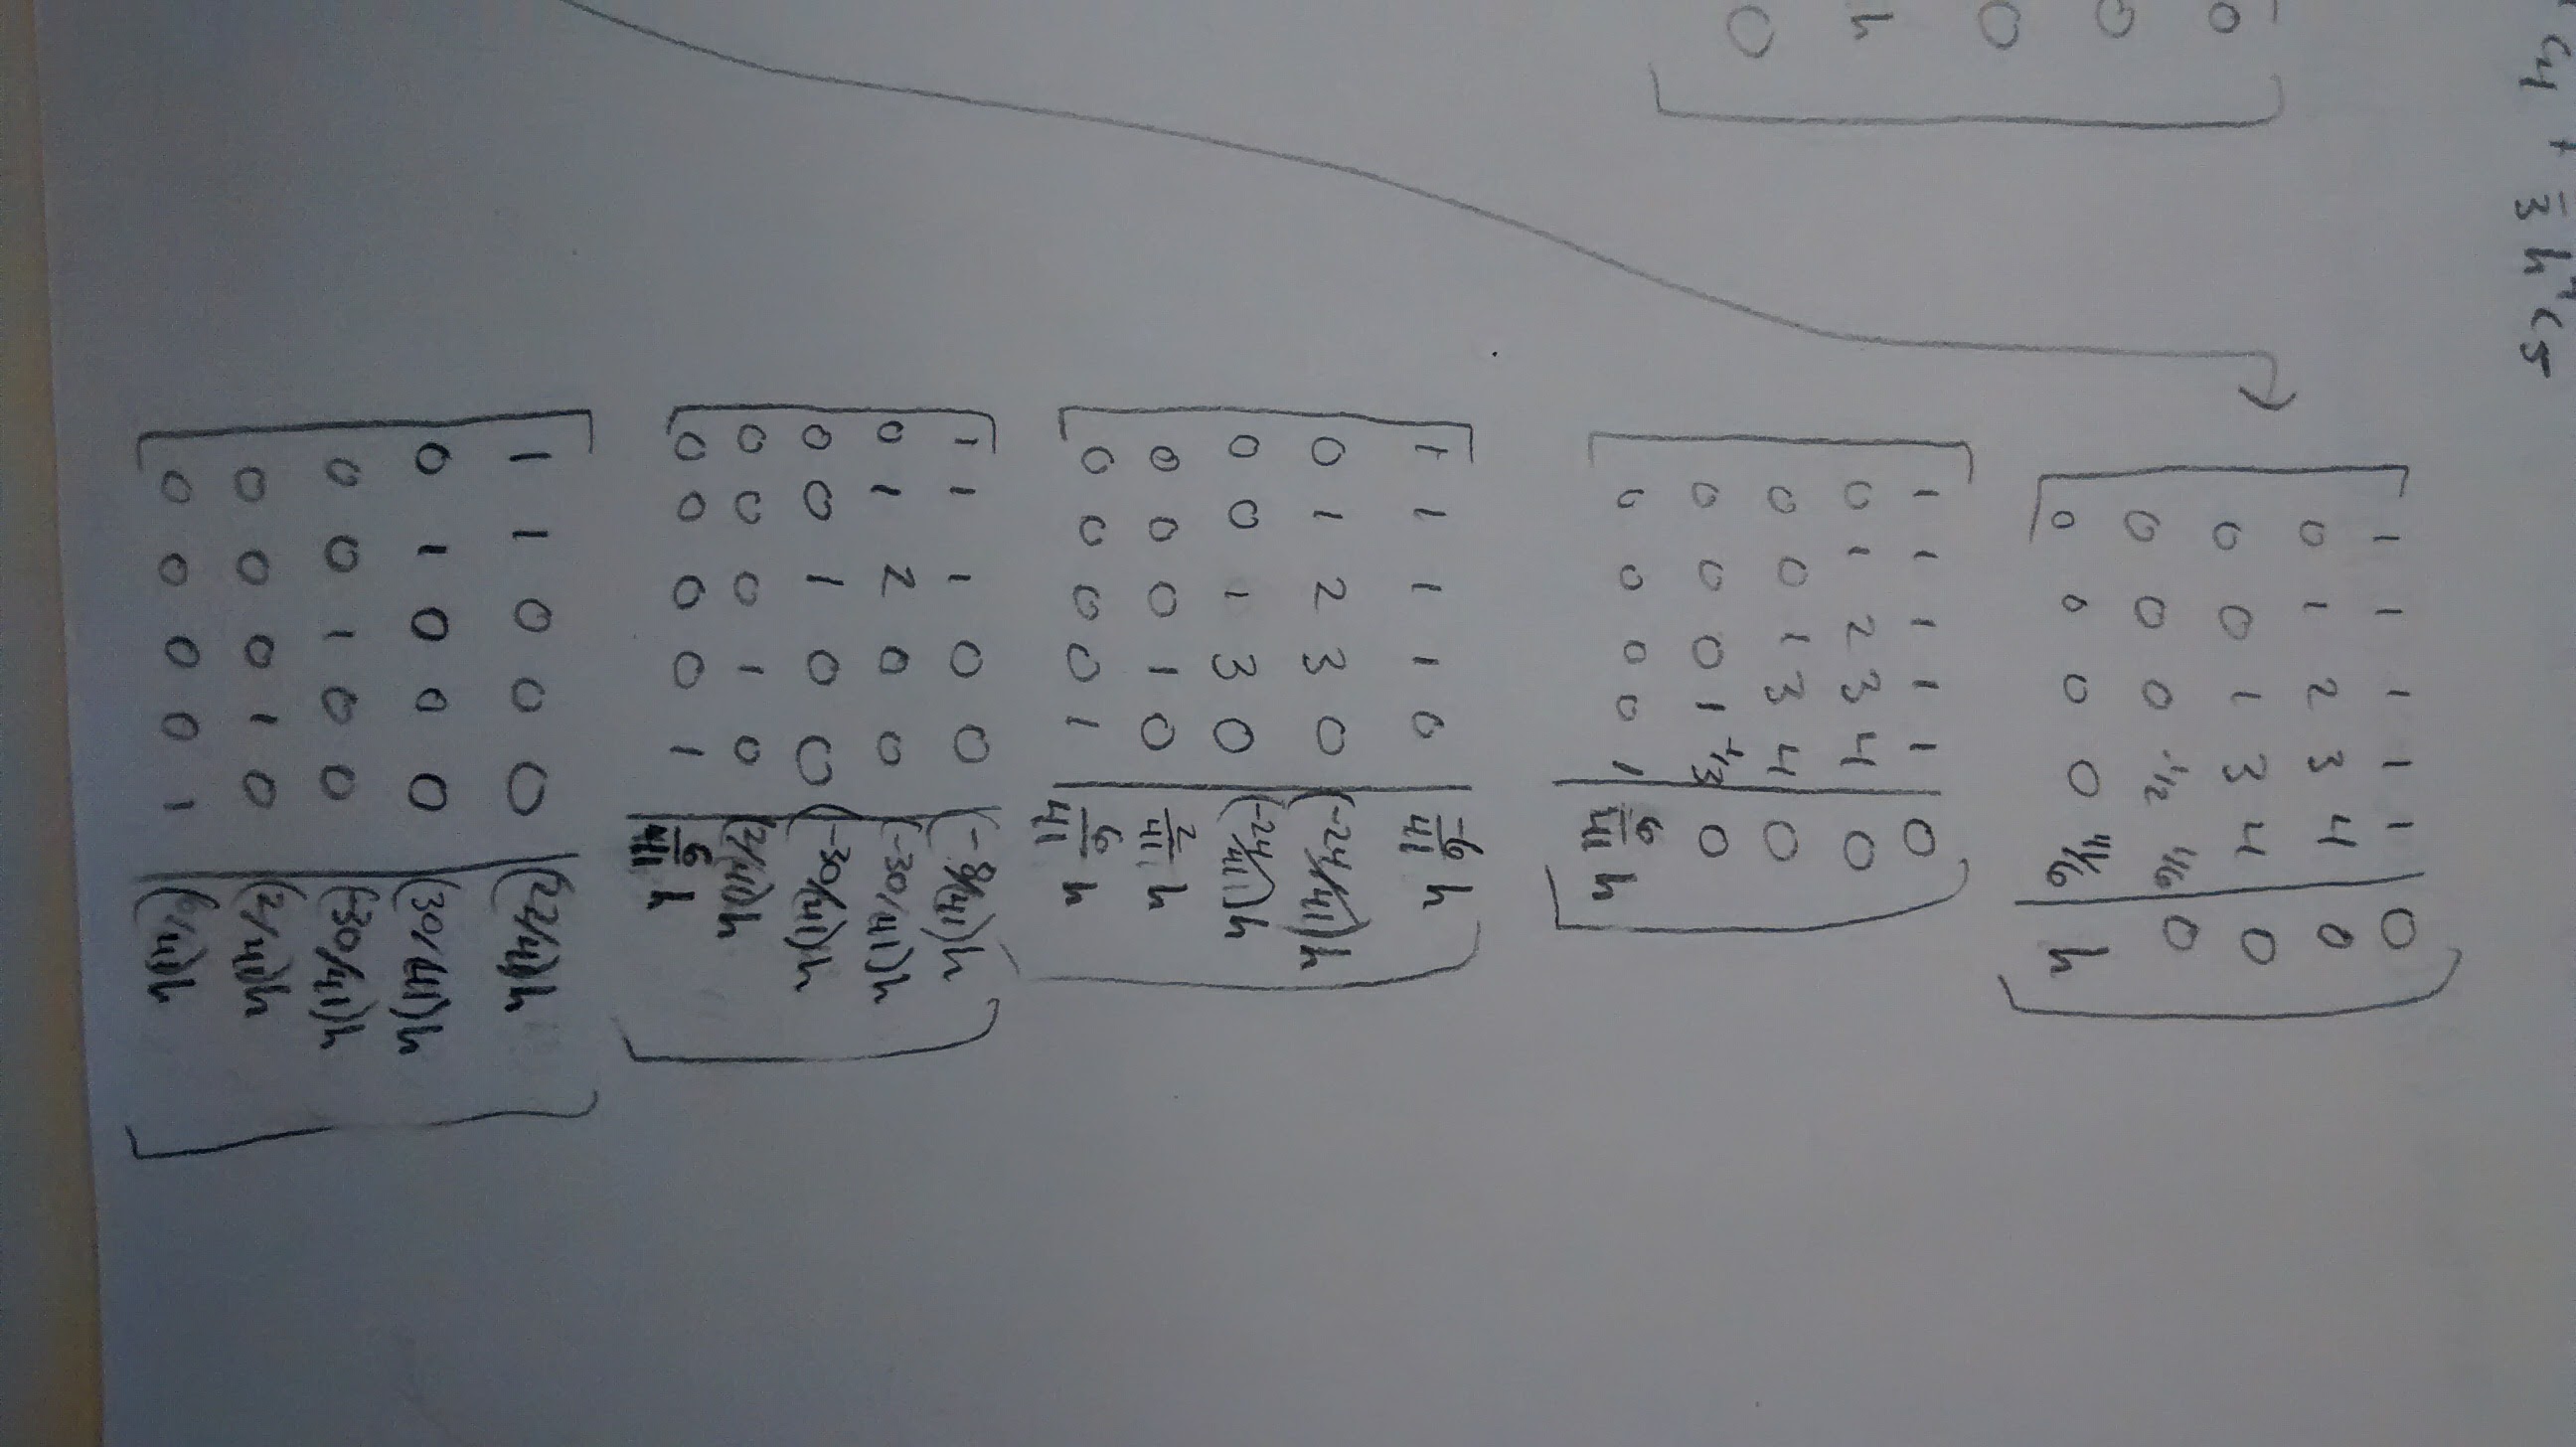 c4 + 1/3 h⁴ c5
0
0
0
h
0
1 1 1 1 1 | 0
0 1 2 3 4 | 0
0 0 1 3 4 | 0
0 0 0 -1/2 1/6 | 0
0 0 0 0 41/6 | h
1 1 1 1 1 | 0
0 1 2 3 4 | 0
0 0 1 3 4 | 0
0 0 0 1 -1/3 | 0
0 0 0 0 1 | 6/41 h
1 1 1 1 0 | -6/41 h
0 1 2 3 0 | (-24/41)h
0 0 1 3 0 | (-24/41)h
0 0 0 1 0 | 2/41 h
0 0 0 0 1 | 6/41 h
1 1 1 0 0 | (-8/41)h
0 1 2 0 0 | (-30/41)h
0 0 1 0 0 | (-30/41)h
0 0 0 1 0 | (2/41)h
0 0 0 0 1 | 6/41 h
1 1 0 0 0 | (22/41)h
0 1 0 0 0 | (30/41)h
0 0 1 0 0 | (-30/41)h
0 0 0 1 0 | (2/41)h
0 0 0 0 1 | (6/41)h